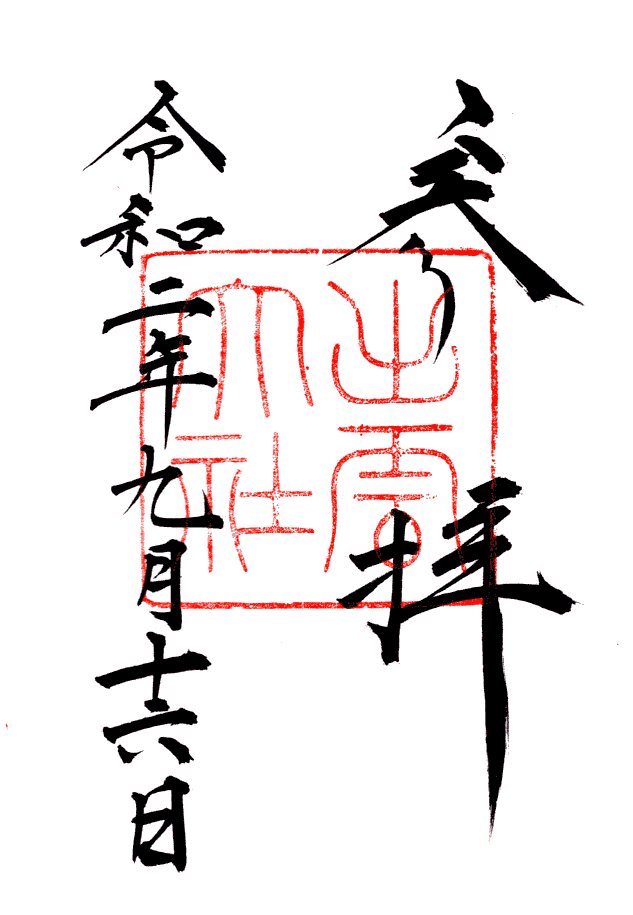 参拝
出雲大社
令和二年九月十六日